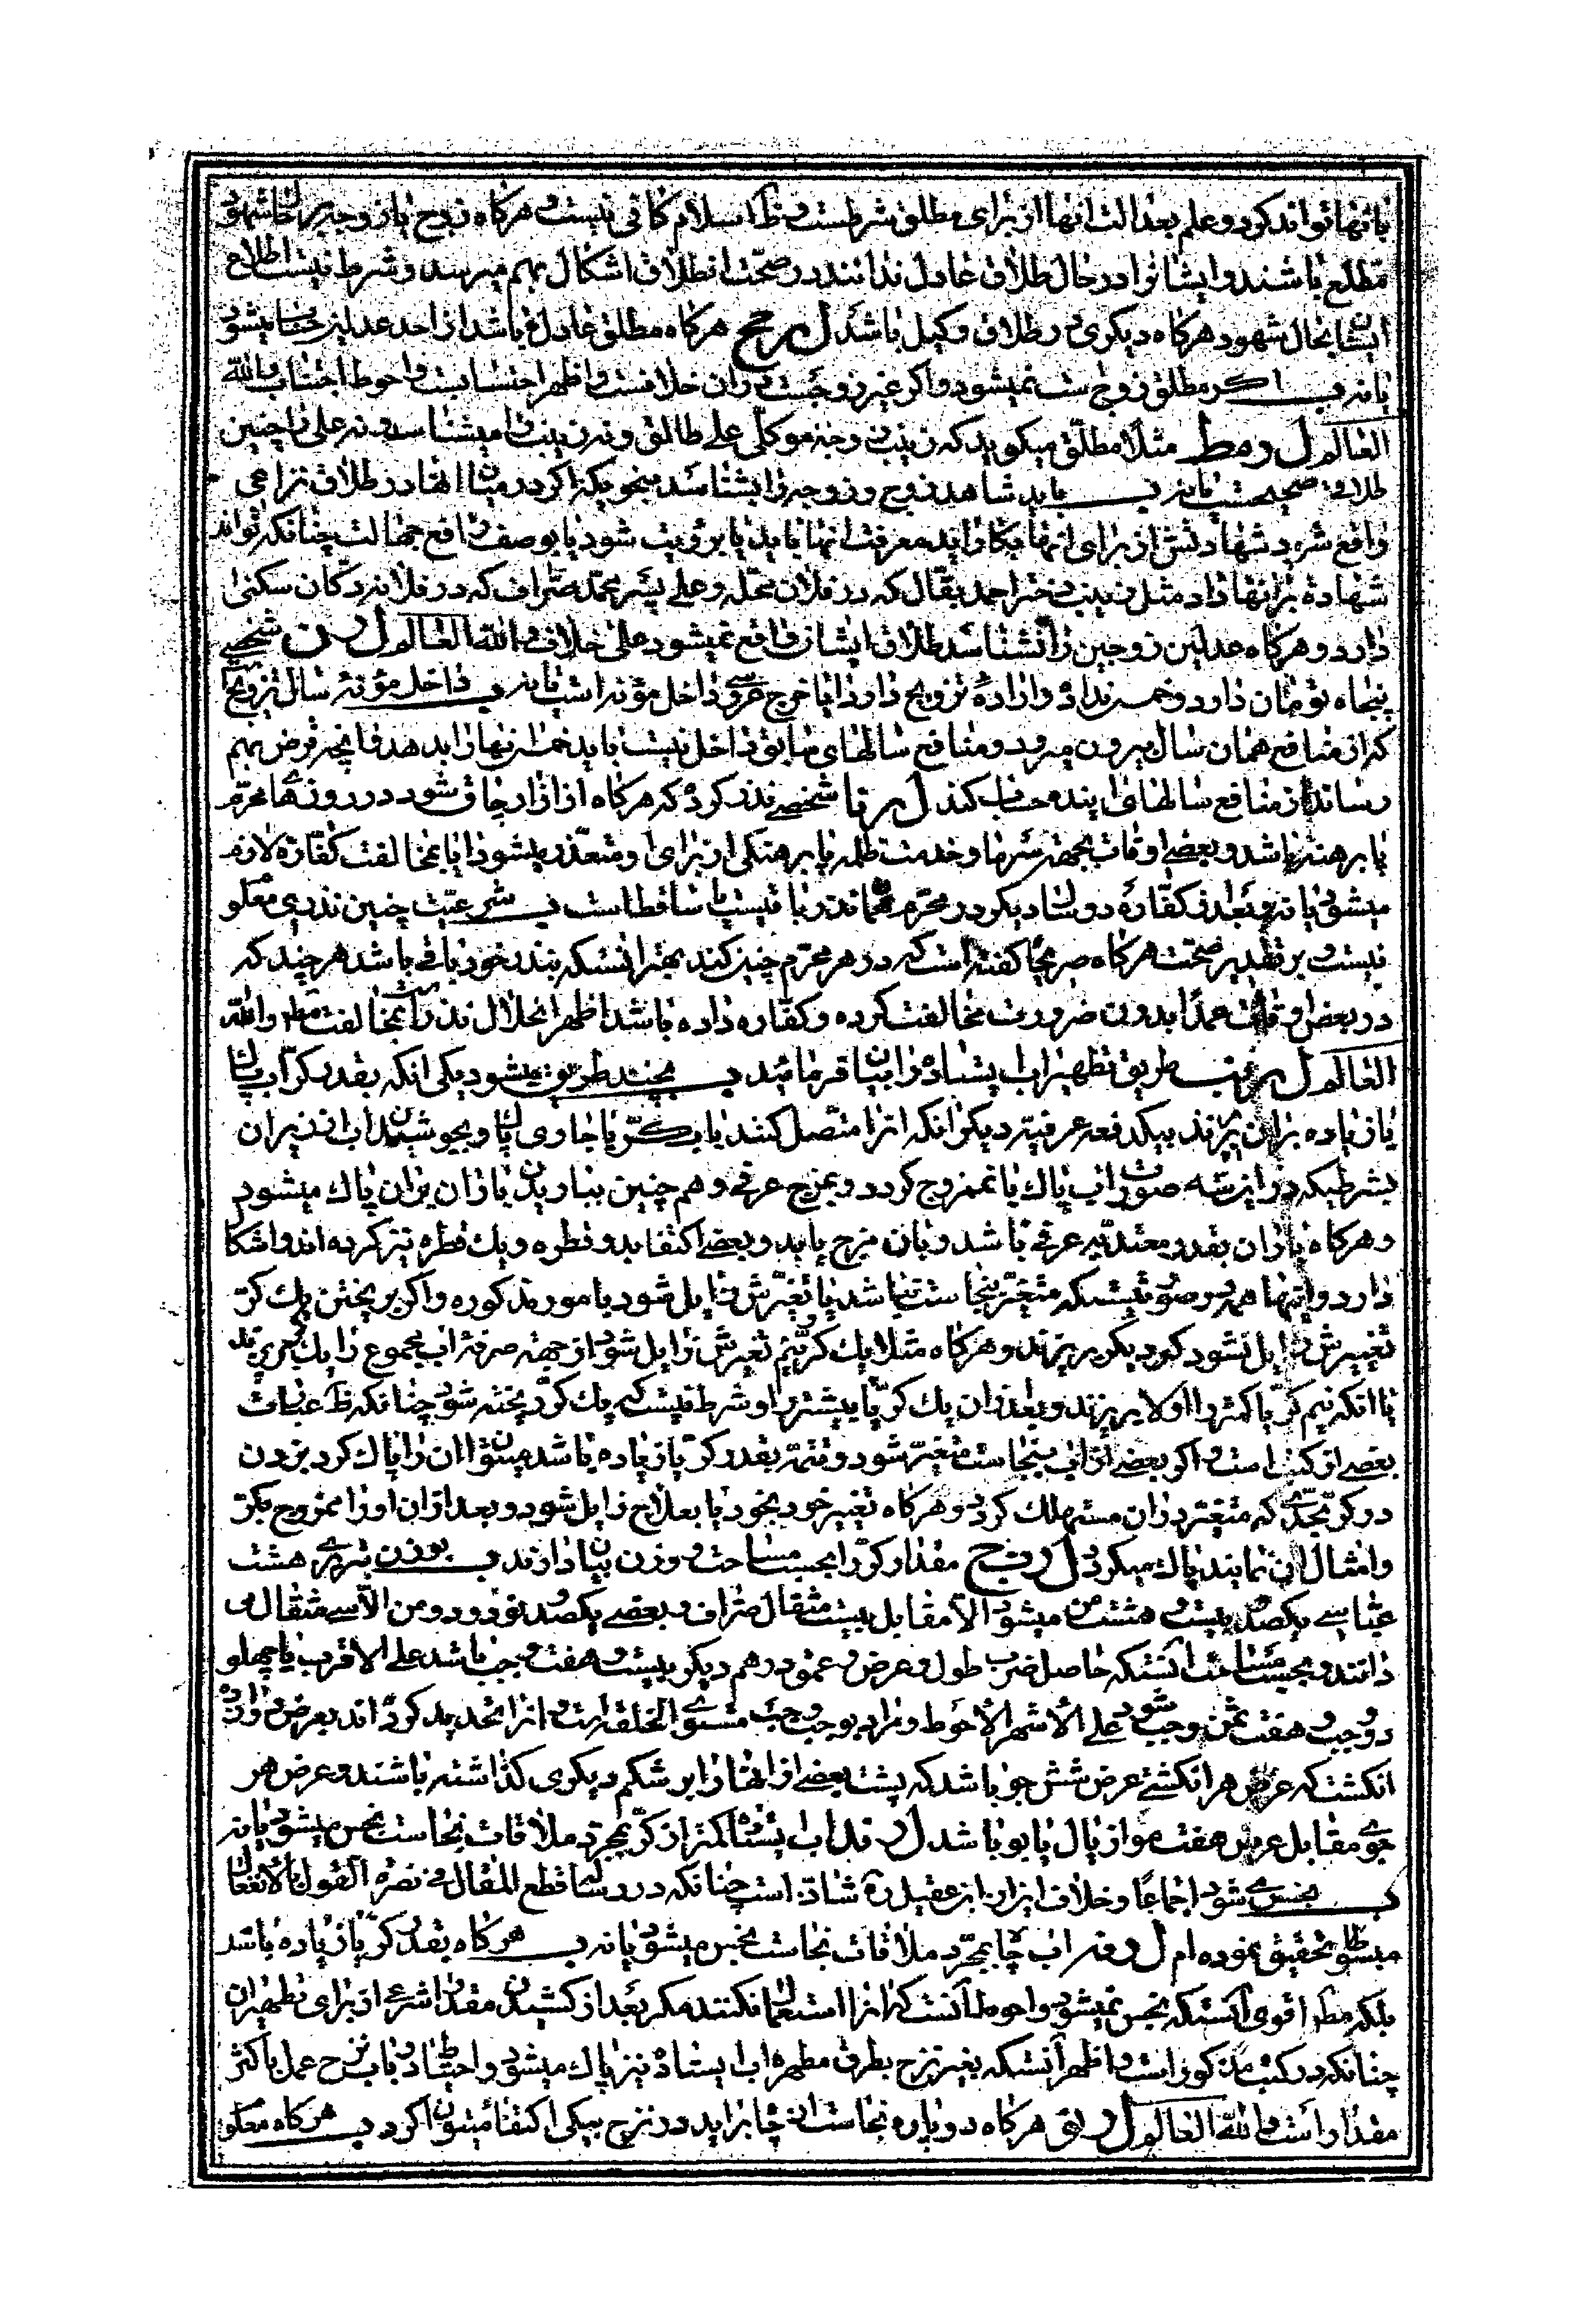 یا تنها تواند کرد و علم بعدالت انها از برای مطلق شرطست و ظ اسلام کافی نیست و هرکاه زوج یا زوجه بر حال شهود
مطلع باشند و ایشانرا در حال طلاق عادل ندانند در صحت انطلاق اشکال بهم میرسد و شرط نیست اطلاع
ایشان بحال شهود هرکاه دیکری در طلاق وکیل باشد ل رمح هرکاه مطلق عادل باشد از احد عدلین حساب میشود
یا نه ب اکر مطلق زوج ست نمیشود و اکر غیر زوجست در ان خلافست و اظهر احتسابست و احوط اجتناب والله
العالم ل ومط مثلا مطلق میکوید که زینب زوجه موکلی علی طالق و نه زینب را میشناسد و نه علی را چنین
طلاق صحیحست یا نه ب باید شاهد زوج و زوجه را بشناسد بنحویکه اکر در میان انها در طلاق نزاعی
واقع شود شهادتش از برای انها بکار اید معرفت انها باید یا برؤیت شود یا بوصف رافع جهالت چنانکه تواند
شهادة بر انها داد مثل زینب دختر احمد بقال که در فلان محله و علی پسر محمد صراف که در فلانه دکان سکنی
دارد و هرکاه عدلین زوجین را نشناسد طلاق ایشان واقع نمیشود علی خلاف والله العالم ل رن شخصی
پنجاه تومان دارد و خمس نداده و اراده تزویج دارد ایا خرج عروسی داخل مؤنه است یا نه ب داخل مؤنه سال تزویج
که از منافع همان سال بیرون میرود و منافع سالهای سابق داخل نیست باید خمس انها را بدهد و انچه قرض بهم
رساند از منافع سالهای اینده حساب کند ل رنا شخصی نذر کرده که هرکاه از ازار چاق شود در روزهای محرم
پا برهنه باشد و بعضی اوقات بجهة سرما و خدمت ظلمه پا برهنکی از برای او متعذر میشود ایا بمخالفت کفاره لازم
میشود یا نه و بعد از کفاره دو سال دیکر در محرم همان نذر باقیست یا ساقط است ب شرعیت چنین نذری معلوم
نیست و بر تقدیر صحت هرکاه صریحا کفته است که در هر محرم چنین کند بهتر انستکه بنذر خود باقی باشد هر چند که
در بعض اوقات عمدا بدون ضرورت مخالفت کرده و کفاره داده باشد اظهر انحلال نذر است بمخالفت مطلقا والله
العالم ل رنب طریق تطهیر اب ایستاده را بیان فرمائید ب بچند طریق میشود یکی انکه بقدر کر آب پاک
یا زیاده بر ان بریزند بیکدفعه عرفیه دیکر انکه انرا متصل کنند باب کر یا جاری پاک و بجوشیدن اب از زیر ان
بشرطیکه در این سه صورت اب پاک با ان ممزوج کردد و بمزج عرفی و هم چنین بباریدن باران بران پاک میشود
و هرکاه باران بقدر معتد به عرفی باشد و بان مزج یابد و بعضی اکتفا بدو قطره و یک قطره نیز کرده اند و اشکال
دارد و اینها همه در صورتیستکه متغیر بنجاست نباشد یا تغیرش زایل شود بامور مذکوره و اکر بریختن یک کر
تغییرش زایل نشود کر دیکر بریزند و هرکاه مثلا بیک کر و نیم تغیرش زایل شود از جهة صرفه اب مجموع را یک مرتبه بریزند
یا انکه نیم کر یا کمتر را اولا بریزند و بعد از ان یک کر یا بیشتر را و شرط نیست که یک کر ریخته شود چنانکه ظ عبارات
بعضی از کتب است و اکر بعضی از اب بنجاست متغیر شود و تتمه بقدر کر یا زیاده باشد میتوان انرا پاک کرد بزدن
در کر بحدی که متغیر در ان مستهلک کردد و هرکاه تغییر خود بخود یا بعلاج زایل شود و بعد از ان اورا ممزوج بکر
و امثال ان نمایند پاک میکردد ل رنج مقدار کر را بحسب مساحت و وزن بیان دارند ب بوزن تبریزی هشت
عباسی یکصد و بیست و هشت من میشود الا مقابل بیست مثقال صراف و بعضی یکصد و نود و دو من الا سی مثقال می
دانند و بحسب مساحت انستکه حاصل ضرب طول و عرض و عمق در هم دیکر بیست و هفت وجب باشد علی الاقرب یا چهل و
دو وجب و هفت ثمن وجب شود علی الاشهر الاحوط و مراد بوجب وجب مستوی الخلقه است و انرا تحدید کرده اند بعرض دوازده
انکشت که عرض هر انکشتی عرض شش جو باشد که پشت بعضی از انها را بر شکم دیکری کذاشته باشند و عرض هر
جوی مقابل عرض هفت مو از یال یابو باشد ل رند اب ایستاده کمتر از کر بمجرد ملاقات نجاست نجس میشود یا نه
ب نجس می شود اجماعا و خلاف ابن ابی عقیل ره شاذ است چنانکه در رساله قطع المقال فی نصرة القول بالانفعال
مبسوطا تحقیق نموده ام ل رنه اب چاه بمجرد ملاقات نجاست نجس میشود یا نه ب هرکاه بقدر کر یا زیاده باشد
بلکه مطلقا اقوی انستکه نجس نمیشود و احوط آنست که انرا استعمال نکنند مکر بعد از کشیدن مقدار شرعی از برای تطهیر ان
چنانکه در کتب مذکور است و اظهر آنستکه بغیر نزح بطرق مطهره اب ایستاده نیز پاک میشود و احتیاط در باب نزح عمل باکثر
مقدار است والله العالم ل رنو هرکاه دو باره نجاست ان چاه براید در نزح بیکی اکتفا میتوان کرد ب هرکاه معلوم